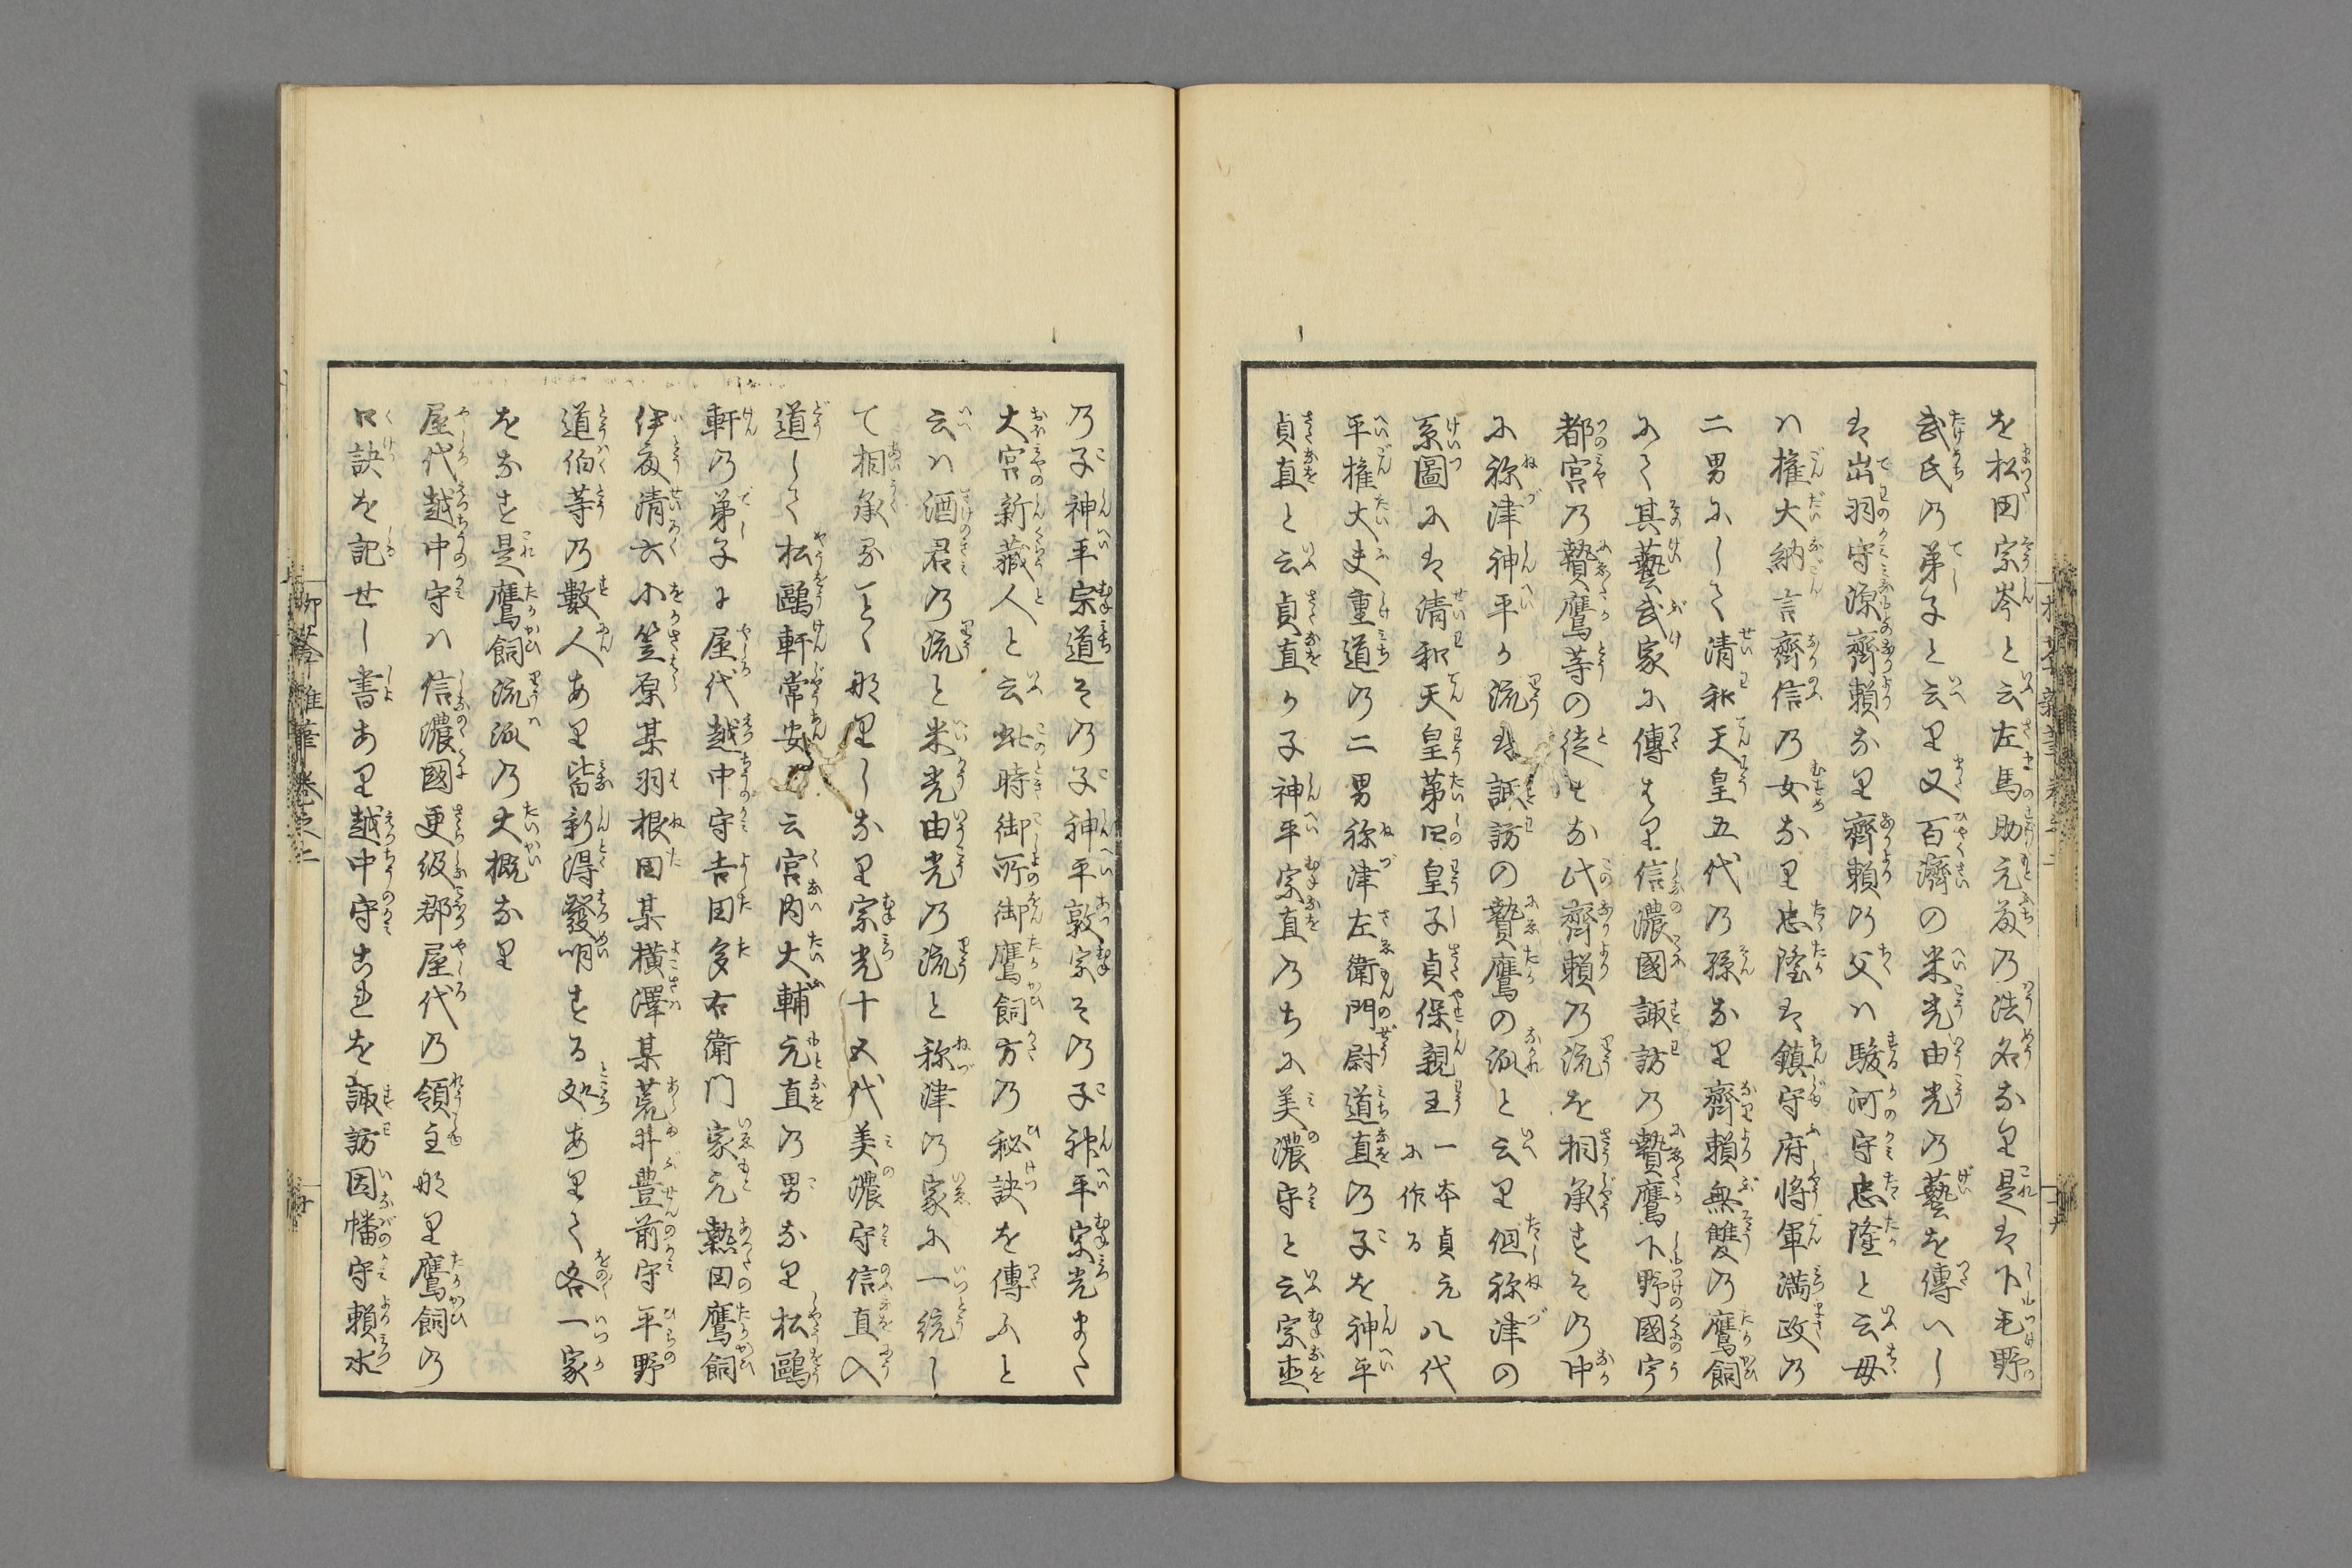 を松田宗岑と云左馬助元藤の法名なり是は下毛野
武氏の弟子と云り又百濟の米光由光の藝を傳へし
は出羽守源齊頼なり齊頼の父ハ駿河守忠隆と云母
ハ権大納言齊信の女なり忠隆は鎮守府将軍満政の
二男にして清和天皇五代の孫なり齊頼無雙の鷹飼
にて其藝武家に傳はり信濃國諏訪の贄鷹下野國宇
都宮の贄鷹等の徒はな此齊頼の流を相承すその中
に祢津神平か流は諏訪の贄鷹の派と云り但祢津の
系圖には清和天皇第四皇子貞保親王一本貞元に作る八代
平権大夫重道の二男祢津左衛門尉道直の子を神平
貞直と云貞直か子神平宗直のちに美濃守と云宗直
の子神平宗道その子神平敦宗その子神平宗光また
大宮新藏人と云此時御所御鷹飼方の秘訣を傳ふと
云ハ酒君の流と米光由光の流と祢津の家に一統し
て相承るべく那里しなり宗光十五代美濃守信直入
道して松鷗軒常安と云宮内大輔元直の男なり松鷗
軒の弟子に屋代越中守吉田多右衛門家元熱田鷹飼
伊藤清六小笠原某羽根田某横澤某荒井豊前守平野
道伯等の數人あり皆新得發明する処ありて各一家
をなす是鷹飼流派の大概なり
屋代越中守ハ信濃國更級郡屋代の領主那里鷹飼の
口訣を記せし書あり越中守これを諏訪因幡守頼水
柳菴雜筆卷之二